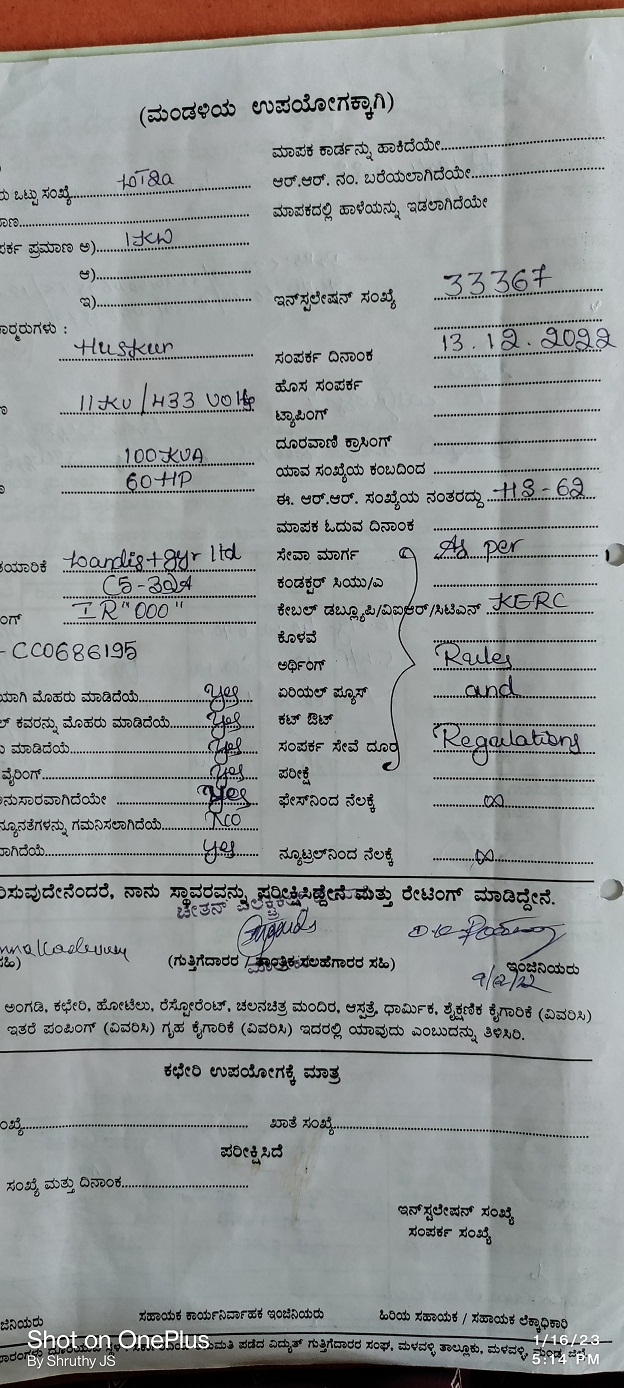 (ಮಂಡಳಿಯ ಉಪಯೋಗಕ್ಕಾಗಿ)
ಮಾಪಕ ಕಾರ್ಡನ್ನು ಹಾಕಿದೆಯೇ
ಒಟ್ಟು ಸಂಖ್ಯೆ
ಆರ್.ಆರ್. ನಂ. ಬರೆಯಲಾಗಿದೆಯೇ
ಮಾಪಕದಲ್ಲಿ ಹಾಳೆಯನ್ನು ಇಡಲಾಗಿದೆಯೇ
ಪ್ರಮಾಣ ಅ) 1KW
ಆ)
ಇ)
ಇನ್‌ಸ್ಟಲೇಷನ್ ಸಂಖ್ಯೆ 33367
Huskur
ಸಂಪರ್ಕ ದಿನಾಂಕ 13.12.2022
ಹೊಸ ಸಂಪರ್ಕ
11KV/433 Volts
ಟ್ಯಾಪಿಂಗ್
ದೂರವಾಣಿ ಕ್ರಾಸಿಂಗ್
100KVA
ಯಾವ ಸಂಖ್ಯೆಯ ಕಂಬದಿಂದ
60HP
ಈ. ಆರ್.ಆರ್. ಸಂಖ್ಯೆಯ ನಂತರದ್ದು HS-62
ಮಾಪಕ ಓದುವ ದಿನಾಂಕ
Landis+gyr ltd
ಸೇವಾ ಮಾರ್ಗ As per
C5-30A
ಕಂಡಕ್ಟರ್ ಸಿಯು/ಎ
IR "000"
ಕೇಬಲ್ ಡಬ್ಲ್ಯೂಪಿ/ವಿಐಆರ್/ಸಿಟಿಎಸ್ KERC
ಕೊಳವೆ
CC0686195
ಅರ್ಥಿಂಗ್ Rules
ಮೊಹರು ಮಾಡಿದೆಯೆ yes
ಏರಿಯಲ್ ಪ್ಯೂಸ್ and
ಕವರನ್ನು ಮೊಹರು ಮಾಡಿದೆಯೆ yes
ಕಟ್ ಔಟ್
ಮಾಡಿದೆಯೆ yes
ಸಂಪರ್ಕ ಸೇವೆ ದೂರ Regulations
ವೈರಿಂಗ್ yes
ಪರೀಕ್ಷೆ
yes
ಫೇಸ್‌ನಿಂದ ನೆಲಕ್ಕೆ ∞
ಗಮನಿಸಲಾಗಿದೆಯೆ No
yes
ನ್ಯೂಟ್ರಲ್‌ನಿಂದ ನೆಲಕ್ಕೆ ∞
ನಾನು ಸ್ಥಾವರವನ್ನು ಪರೀಕ್ಷಿಸಿದ್ದೇನೆ ಮತ್ತು ರೇಟಿಂಗ್ ಮಾಡಿದ್ದೇನೆ.
(ಗುತ್ತಿಗೆದಾರರ / ತಾಂತ್ರಿಕ ಸಲಹೆಗಾರರ ಸಹಿ)
ಇಂಜಿನಿಯರು
ಅಂಗಡಿ, ಕಛೇರಿ, ಹೋಟೆಲು, ರೆಸ್ಟೋರೆಂಟ್, ಚಲನಚಿತ್ರ ಮಂದಿರ, ಆಸ್ಪತ್ರೆ, ಧಾರ್ಮಿಕ, ಶೈಕ್ಷಣಿಕ ಕೈಗಾರಿಕೆ (ವಿವರಿಸಿ)
ಇತರೆ ಪಂಪಿಂಗ್ (ವಿವರಿಸಿ) ಗೃಹ ಕೈಗಾರಿಕೆ (ವಿವರಿಸಿ) ಇದರಲ್ಲಿ ಯಾವುದು ಎಂಬುದನ್ನು ತಿಳಿಸಿರಿ.
ಕಛೇರಿ ಉಪಯೋಗಕ್ಕೆ ಮಾತ್ರ
ಖಾತೆ ಸಂಖ್ಯೆ
ಪರೀಕ್ಷಿಸಿದೆ
ಸಂಖ್ಯೆ ಮತ್ತು ದಿನಾಂಕ
ಇನ್‌ಸ್ಟಲೇಷನ್ ಸಂಖ್ಯೆ
ಸಂಪರ್ಕ ಸಂಖ್ಯೆ
ಸಹಾಯಕ ಕಾರ್ಯನಿರ್ವಾಹಕ ಇಂಜಿನಿಯರು
ಹಿರಿಯ ಸಹಾಯಕ / ಸಹಾಯಕ ಲೆಕ್ಕಾಧಿಕಾರಿ
ಪಡೆದ ವಿದ್ಯುತ್ ಗುತ್ತಿಗೆದಾರರ ಸಂಘ, ಮಳವಳ್ಳಿ ತಾಲ್ಲೂಕು, ಮಳವಳ್ಳಿ, ಮಂಡ್ಯ ಜಿಲ್ಲೆ
Shot on OnePlus
By Shruthy JS
1/16/23
5:14 PM